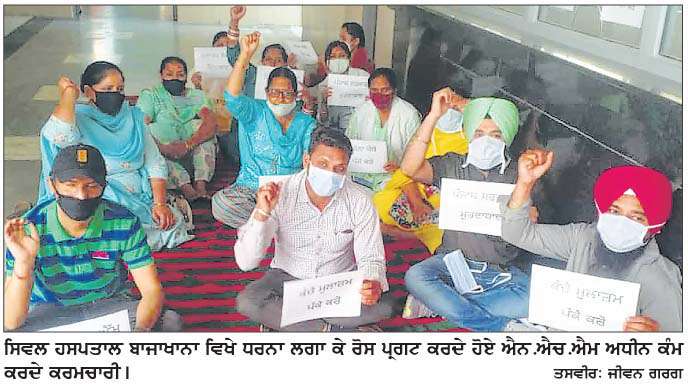 ਪੰਜਾਬ ਸਰਕਾਰ
ਮੁਰਦਾਬਾਦ
ਕੱਚੇ ਮੁਲਾਜ਼ਮ
ਪੱਕੇ ਕਰੋ
ਕੱਚੇ ਮੁਲਾਜ਼ਮ
ਪੱਕੇ ਕਰੋ
ਸਿਵਲ ਹਸਪਤਾਲ ਬਾਜਾਖਾਨਾ ਵਿਖੇ ਧਰਨਾ ਲਗਾ ਕੇ ਰੋਸ ਪ੍ਰਗਟ ਕਰਦੇ ਹੋਏ ਐਨ.ਐਚ.ਐਮ ਅਧੀਨ ਕੰਮ
ਕਰਦੇ ਕਰਮਚਾਰੀ।
ਤਸਵੀਰ: ਜੀਵਨ ਗਰਗ